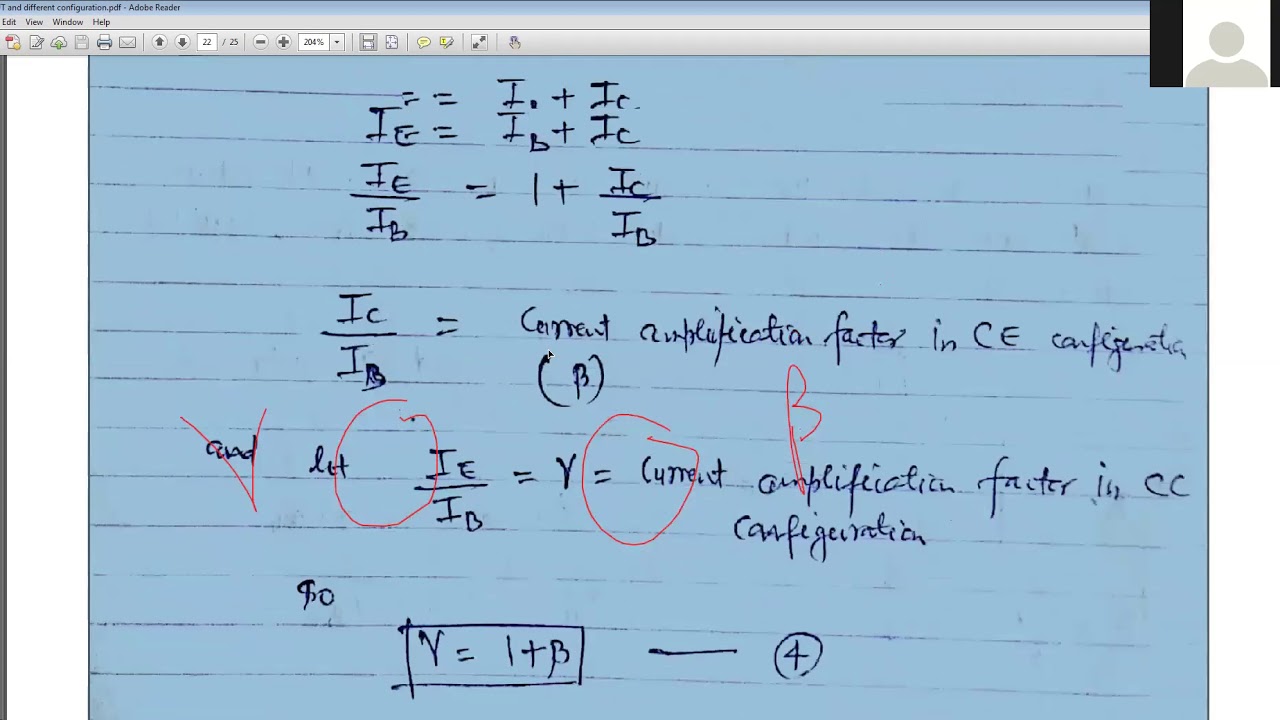 T and different configuration.pdf - Adobe Reader
Edit View Window Help
22 / 25 204%
= = I. + Ic
IE = IB + IC
IE/IB = 1 + IC/IB
IC/IB = Current amplification factor in CE configuration
(β)
β
and let IE/IB = γ = Current amplification factor in CC
configuration
So
γ = 1+β —— 4